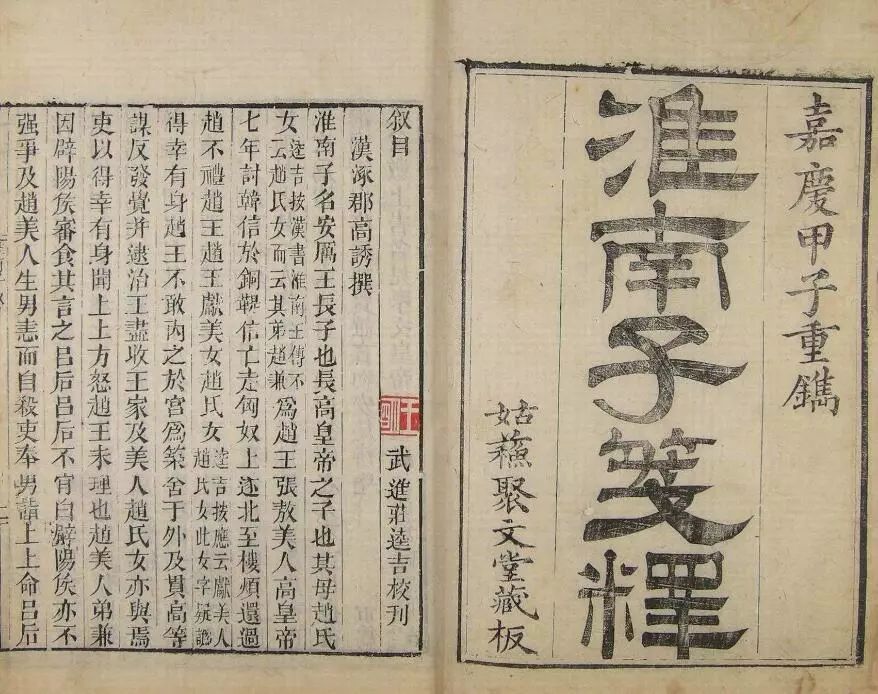 嘉慶甲子重鐫
淮南子箋釋
姑蘓聚文堂藏板
叙目
漢涿郡高誘撰 武進莊逵吉校刊
淮南子名安厲王長子也長高皇帝之子也其母趙氏
女逵吉按漢書淮南王傳不云趙氏女而云其弟趙兼爲趙王張敖美人高皇帝
七年討韓信於銅鞮信亡走匈奴上遂北至樓煩還過
趙不禮趙王趙王獻美女趙氏女逵吉按應云獻美人趙氏女此女字疑譌
得幸有身趙王不敢內之於宮爲築舍于外及貫高等
謀反發覺并逮治王盡收王家及美人趙氏女亦與焉
吏以得幸有身聞上上方怒趙王未理也趙美人弟兼
因辟陽侯審食其言之呂后呂后不肯白辟陽侯亦不
强爭及趙美人生男恚而自殺吏奉男詣上上命呂后